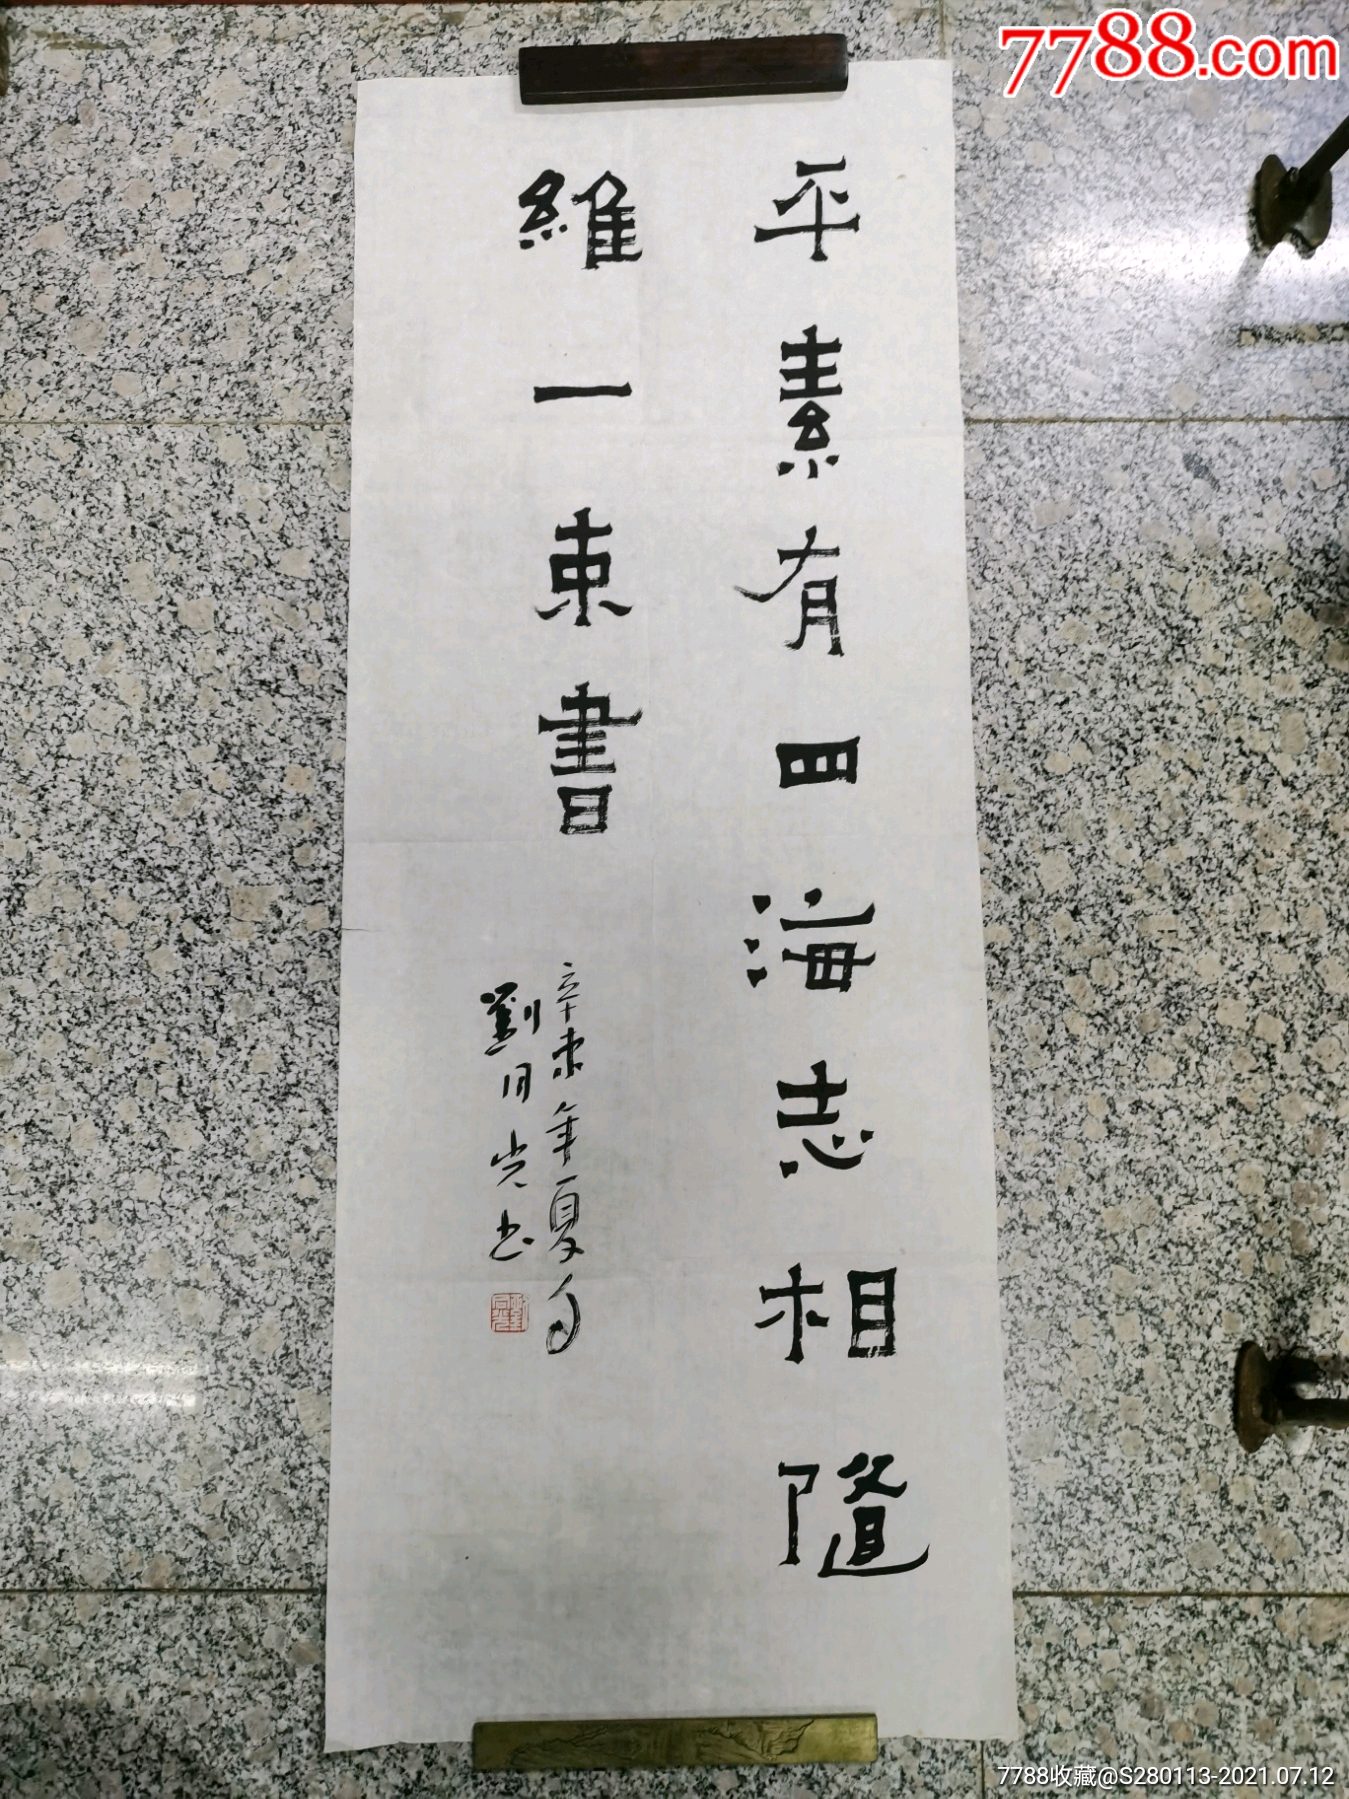 7788.com
平素有四海志相隨
維一束書
辛未年夏月
劉同光书
7788收藏@S280113-2021.07.12